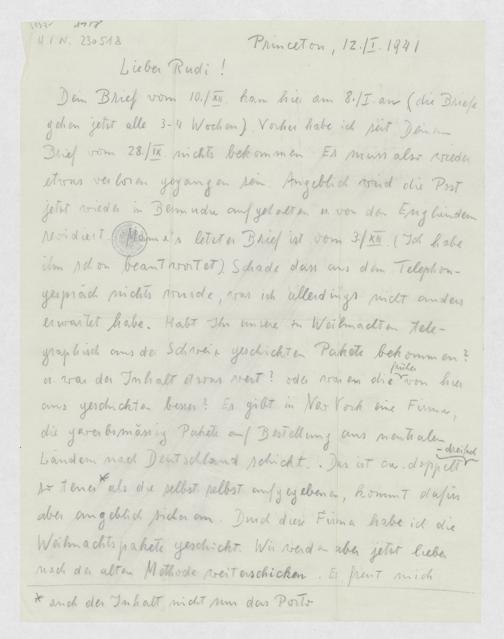 H I N. 230518
Princeton, 12./I. 1941
Lieber Rudi!
Dein Brief vom 10./XII. kam hier am 8./I. an (die Briefe
gehen jetzt alle 3-4 Wochen). Vorher habe ich seit Deinem
Brief vom 28./IX nichts bekommen. Es muss also wieder
etwas verloren gegangen sein. Angeblich wird die Post
jetzt wieder in Bermuda aufgehalten u. von den Engländern
revidiert. Mama's letzter Brief ist vom 3./XII (Ich habe
ihn schon beantwortet) Schade dass aus dem Telephon-
gespräch nichts wurde, was ich allerdings nicht anders
erwartet habe. Habt Ihr unsere zu Weihnachten tele-
graphisch aus der Schweiz geschickten Pakete bekommen?
u. war der Inhalt etwas wert? oder waren die früher von hier
aus geschickten besser? Es gibt in New York eine Firma,
die gewerbsmässig Pakete auf Bestellung aus neutralen
Ländern nach Deutschland schickt. Das ist ca. doppelt -dreifach
so teuer* als die selbst aufgegebenen, kommt dafür
aber angeblich sicher an. Durch diese Firma habe ich die
Weihnachtspakete geschickt. Wir werden aber jetzt lieber
nach der alten Methode weiterschicken. Es freut mich
* auch der Inhalt nicht nur das Porto